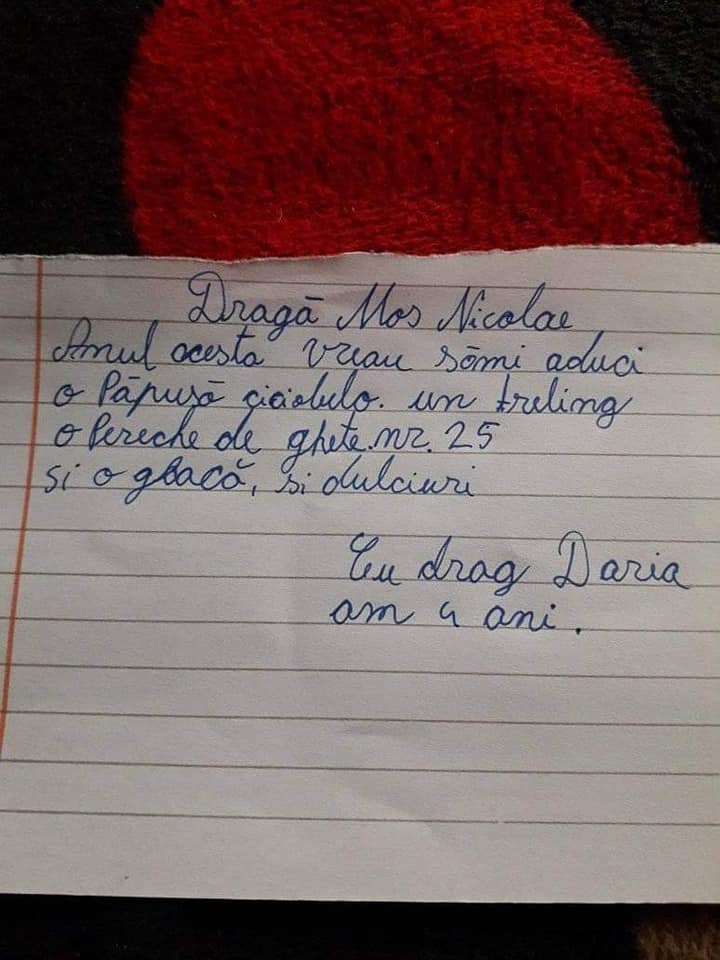 Dragă Mos Nicolae
Anul acesta vreau sămi aduci
o Păpușă un treling
o Pereche de ghete.nr.25
si o geacă, si dulciuri
Cu drag Daria
am 4 ani.